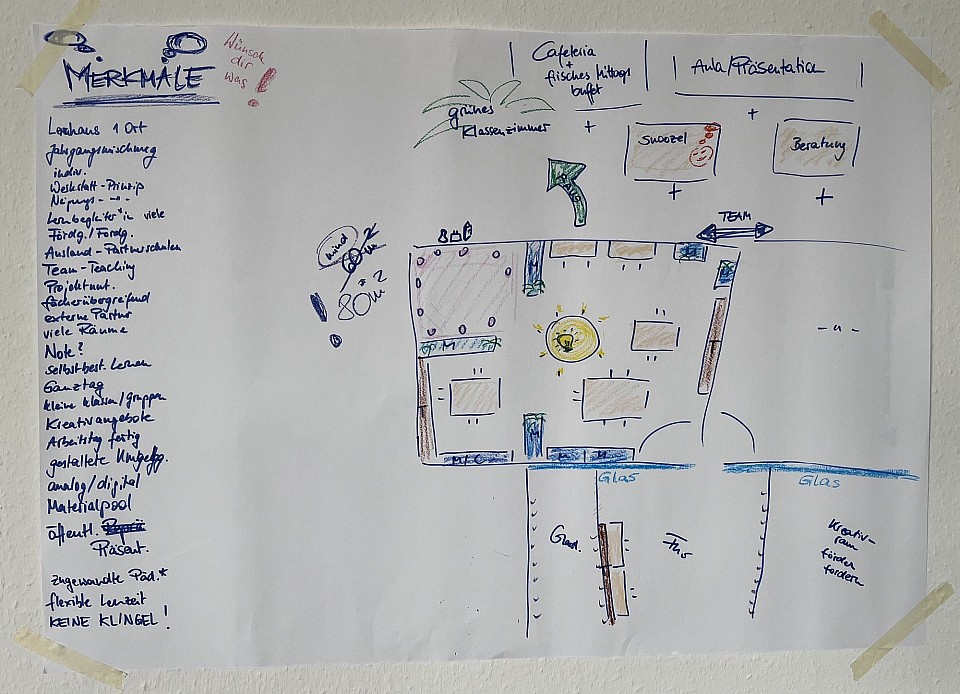 MERKMALE
Wünsch
dir
was !
Lernhaus 1 Ort
Jahrgangsmischung
indiv.
Werkstatt-Prinzip
Neigungs- -"-
Lernbegleiter*in viele
Fördg./Fordg.
Ausland-Partnerschulen
Team-Teaching
Projektunt.
fächerübergreifend
externe Partner
viele Räume
Note?
selbstbest. Lernen
Ganztag
kleine Klassen/gruppen
Kreativangebote
Arbeitstag fertig
gestaltete Umgebg.
analog/digital
Materialpool
öffentl.
Präsent.
zugewandte Päd.*
flexible Lernzeit
KEINE KLINGEL !
grünes
Klassenzimmer
Cafeteria
+
frisches Mittags
buffet
Aula/Präsentation
+
+
Snoozel
Beratung
+
+
TEAM
mind
60m²
80m²
M
M
M
M/C
M
-"-
Glas
Glas
Gard.
Flur
Kreativ-
raum
fördern
fordern